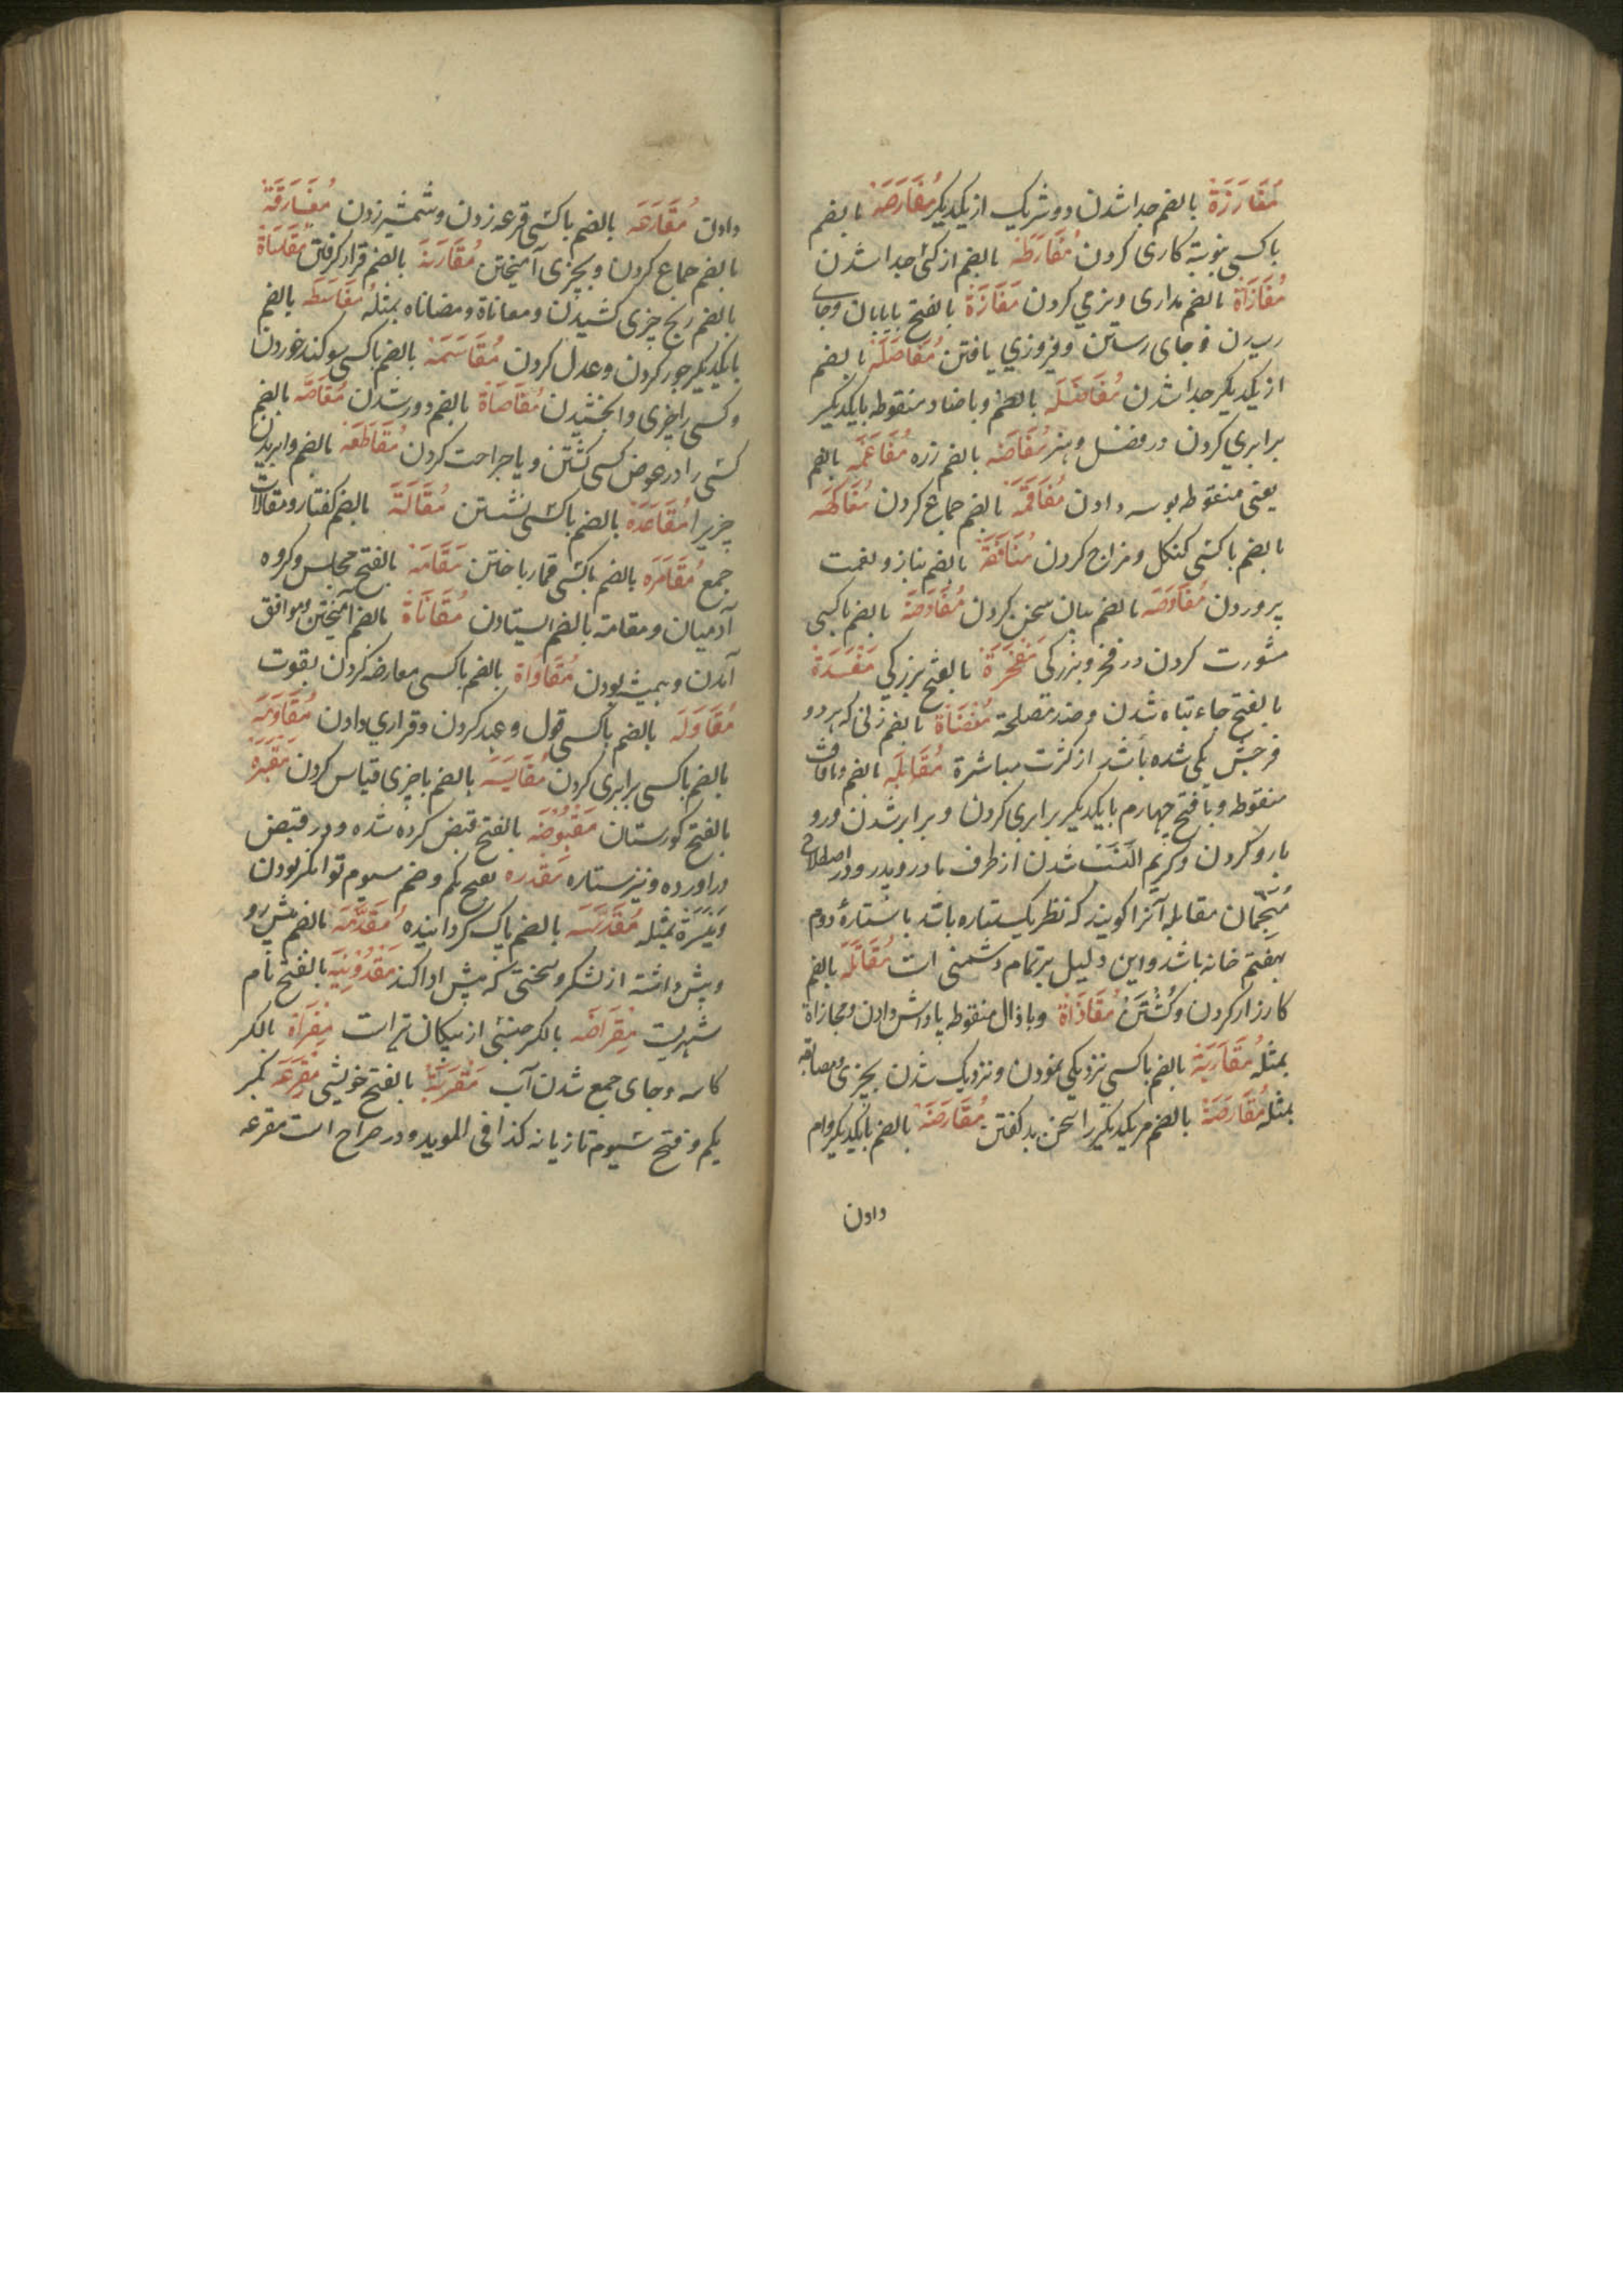 مُفَارَزَة بالضم جدا شدن دو شریک از یکدیگر مُفَارَصَة بالضم
باکسی بنوبة کاری کردن مُفَارَطَة بالضم از کسی جدا شدن
مُفَازَاة بالضم مداری ونرمی کردن مَفَازَة بالفتح بیابان وجای
رسیدن و جای رستن وفیروزی یافتن مُفَاصَلَة بالضم
از یکدیگر جدا شدن مُفَاضَلَه بالضم وباضاد منقوطه بایکدیگر
برابری کردن در فضل وهنر مُفَاضَه بالضم زره مُفَاغَمَه بالضم
یعنی منقوطه بوسه دادن مُفَاقَمَة بالضم جماع کردن مُفَاکَهَه
بالضم باکسی کنکل ومزاح کردن مُفَانَقَة بالضم بناز ونعمت
پروردن مُفَاوَضَه بالضم بیان سخن کردن مُفَاوَضَة بالضم باکسی
مشورت کردن در فخر وبزرکی مَفخَرَة بالفتح بزرکی مَفسَدَة
بالفتح جاء تباه شدن وضد مصلحة مُفضَاة بالضم زنی که هر دو
فرجش یکی شده باشد از کثرت مباشرة مُقَابَلَه بالضم وباقاف
منقوطه وبافتح چهارم بایکدیگر برابری کردن وبرابر شدن ورو
بارو کردن وکریم النسب شدن از طرف مادر وپدر ودر اصطلاح
مُنجّمان مقابله آنرا کویند که نظر یکستاره باشد باستارهٔ دوم
بهفتم خانه باشد واین دلیل بر تمام دشمنی است مُقَاتَلَه بالضم
کارزار کردن وکُشتَن مُقَاذَاة وباذال منقوطه پاداش دادن ومجازاة
بمثله مُقَارَبَة بالضم باکسی نزدیکی نمودن ونزدیک شدن بچیزی ومصاقبه
بمثله مُقَارَصَة بالضم مر یکدیگر را سخن بد کفتن مُقَارَضَة بالضم بایکدیگر وام
دادن
دادن مُقَارَعَه بالضم باکسی قرعه زدن وشمشیر زدن مُقَارَفَة
بالضم جماع کردن وبچیزی آمیختن مُقَارَنَة بالضم قرار کرفتن مُقَاسَاة
بالضم رنج چیزی کشیدن ومعاناة ومضاناه بمثله مُقَاسَطَه بالضم
بایکدیگر جور کردن وعدل کردن مُقَاسَمَة بالضم باکسی سوکند خوردن
وکسی را چیزی وابخشیدن مُقَاصَاة بالضم دور شدن مُقَاصَّه بالضم
کسی را در عوض کسی کشتن ویا جراحت کردن مُقَاطَعَة بالضم وابریدن
چیزیرا مُقَاعَدَة بالضم باکسی نشستن مُقَالَة بالضم کفتار ومقالات
جمع مُقَامَرَه بالضم باکسی قمار باختن مَقَامَة بالفتح مجلس وکروه
آدمیان ومقامة بالضم ایستادن مُقَانَاة بالضم آمیختن وموافق
آمدن وهمیشه بودن مُقَاوَاة بالضم باکسی معارضه کردن بقوت
مُقَاوَلَه بالضم باکسی قول وعهد کردن وقراری دادن مُقَاوَمَة
بالضم باکسی برابری کردن مُقَایَسَه بالضم باچیزی قیاس کردن مَقبَرَة
بالفتح کورستان مَقبُوضَه بالفتح قبض کرده شده ودر قبض
درآورده ونیز ستاره مَقدره بفتح یکم وضم سیوم توانکر بودن
وَمَیسَرَة بمثله مُقَدَّسَه بالضم پاک کردانیده مُقَدَّمَة بالضم پیش رو
وپیش داشته از لشکر وسخنی که پیش ادا کند مَقدُونِیَه بالفتح نام
شهریست مِقرَاضَه بالکسر جنسی از پیکان تیر است مِقرَاة بالکسر
کاسه وجای جمع شدن آب مَقرَبَة بالفتح خویشی مِقرَعَه بکسر
یکم وفتح سیوم تازیانه کذا فی الموید ودر صراح است مقرعه